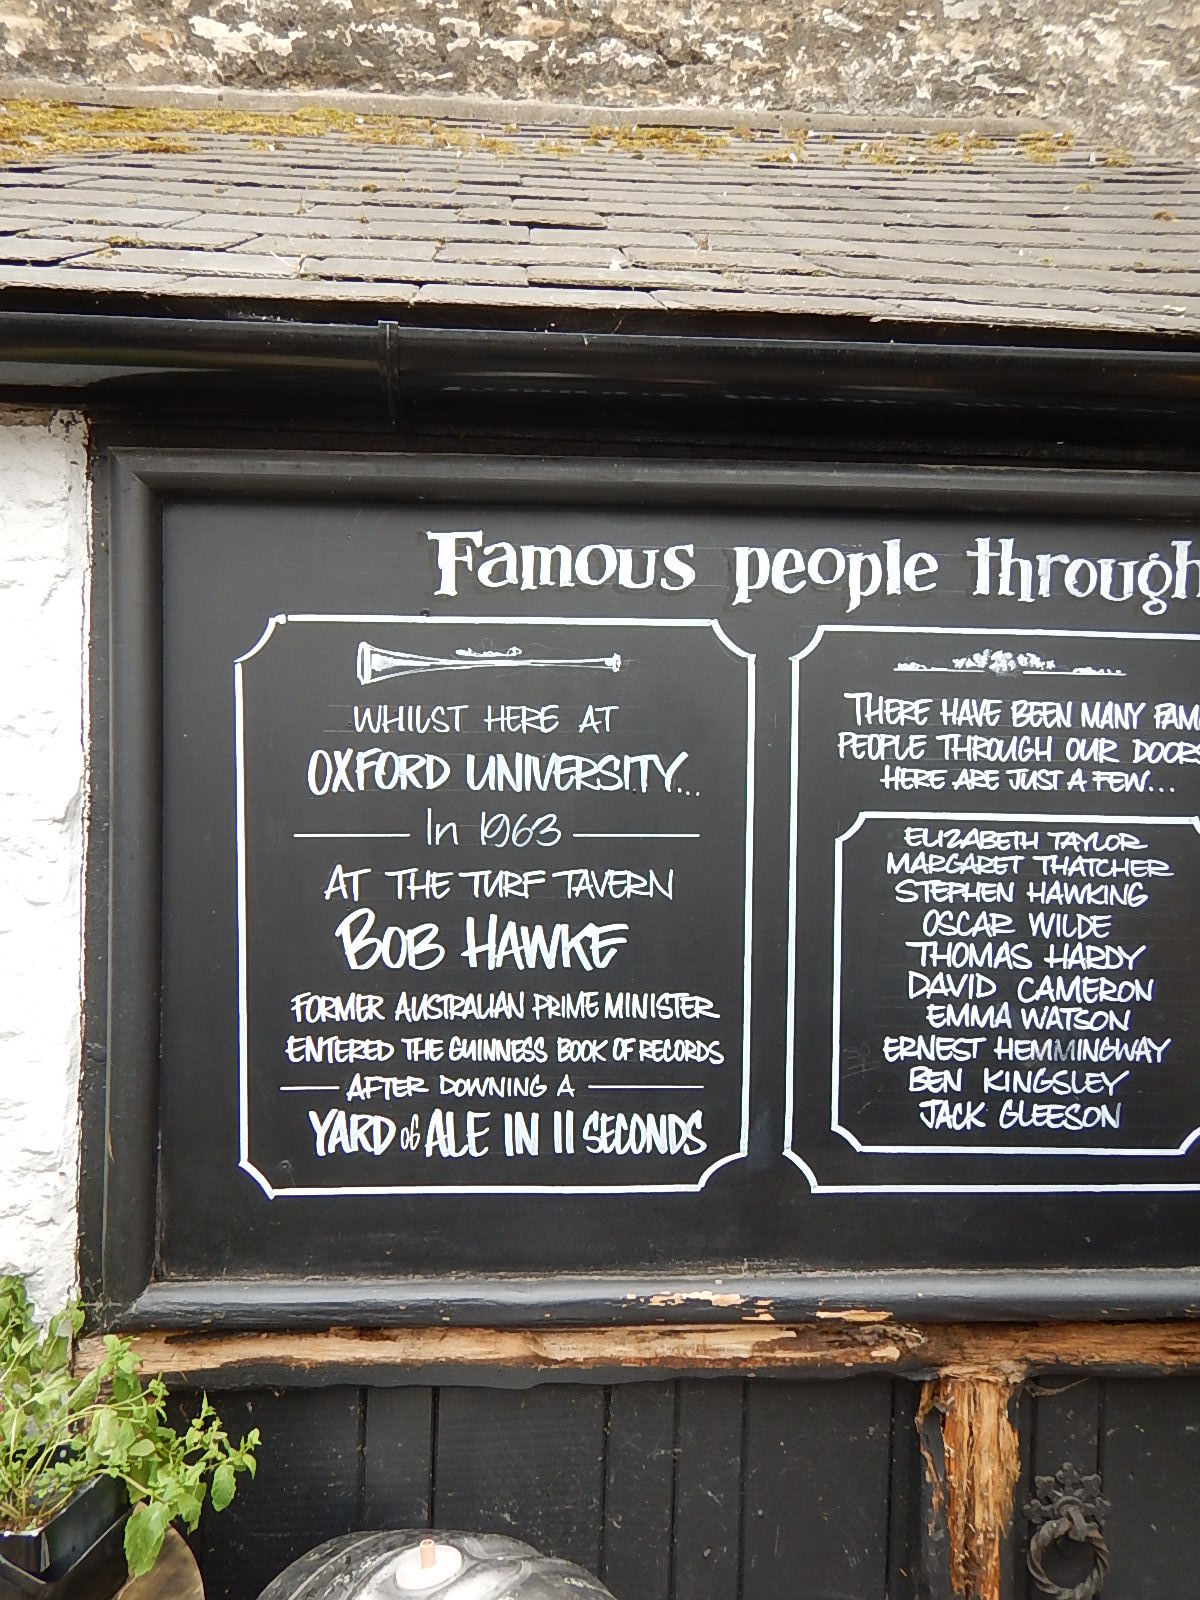 Famous people through
WHILST HERE AT
OXFORD UNIVERSITY...
In 1963
AT THE TURF TAVERN
BOB HAWKE
FORMER AUSTRALIAN PRIME MINISTER
ENTERED THE GUINNESS BOOK OF RECORDS
AFTER DOWNING A
YARD OF ALE IN 11 SECONDS
THERE HAVE BEEN MANY FAM
PEOPLE THROUGH OUR DOORS
HERE ARE JUST A FEW...
ELIZABETH TAYLOR
MARGARET THATCHER
STEPHEN HAWKING
OSCAR WILDE
THOMAS HARDY
DAVID CAMERON
EMMA WATSON
ERNEST HEMMINGWAY
BEN KINGSLEY
JACK GLEESON